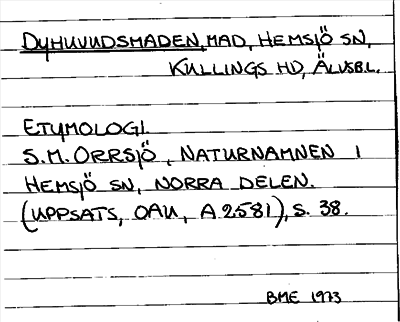 DYHUVUDSMADEN, MAD, HEMSJÖ SN,
KULLINGS HD, ÄLVSB.L.
ETYMOLOGI.
S.M. ORRSJÖ, NATURNAMNEN I
HEMSJÖ SN, NORRA DELEN.
(UPPSATS, OAU, A 2581), S. 38.
BME 1973